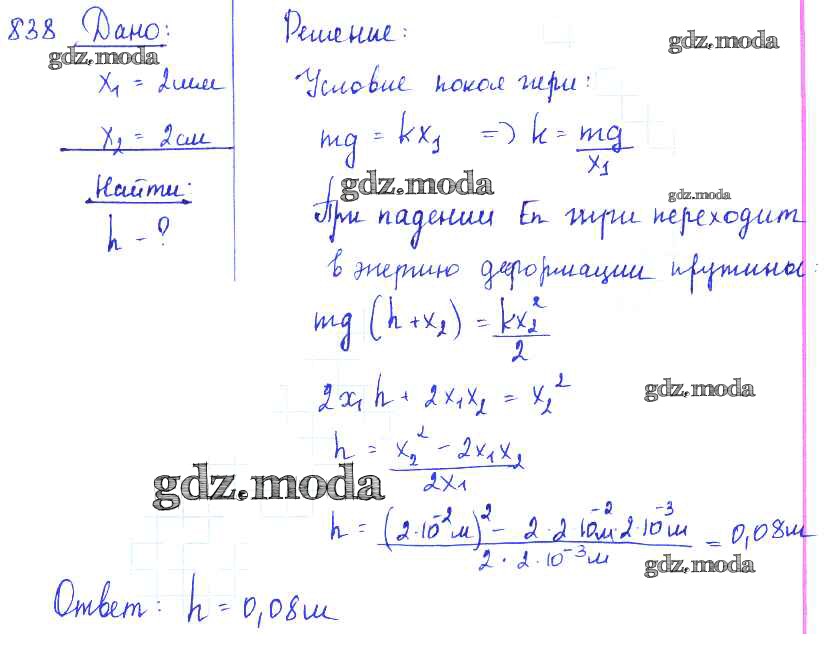 838 Дано:
gdz.moda
x₁ = 2мм
x₂ = 2см
Найти:
h - ?
Решение:
gdz.moda
Условие покоя гири:
mg = kx₁ => k = mg/x₁
gdz.moda
gdz.moda
При падении Eп гири переходит
в энергию деформации пружины:
mg (h + x₂) = kx₂²/2
2x₁h + 2x₁x₂ = x₂²
gdz.moda
h = x₂² - 2x₁x₂ / 2x₁
gdz.moda
h = (2·10⁻²м)² - 2·2·10⁻²м·2·10⁻³м / 2·2·10⁻³м = 0,08м
gdz.moda
Ответ: h = 0,08м